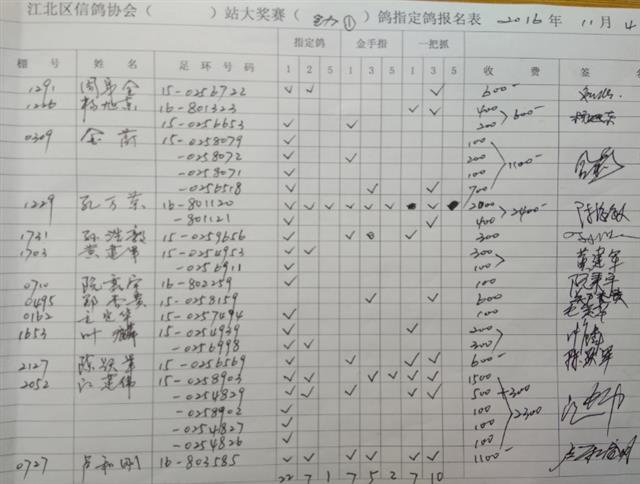 江北区信鸽协会（ ）站大奖赛（ ① ）鸽指定鸽报名表 2016 年 11 月 4
指定鸽 金手指 一把抓
棚 号 姓 名 足 环 号 码 1 2 5 1 3 5 1 3 5 收 费 签 名
1291 周 金 15-0256722 ✓ ✓ ✓ 600-
1266 杨旭东 16-801323 ✓ ✓ 400 600- 杨旭东
15-0256653 ✓ ✓ 200
0309 金 15-0258079 ✓ 100
-0258072 ✓ ✓ 200 1100-
-0258071 ✓ 100
-0256518 ✓ ✓ ✓ 700
1229 孔万荣 16-801120 ✓ ✓ ✓ ✓ ✓ ✓ ✓ 2000 2400-
-801121 ✓ ✓ 400
1731 孙浩毅 15-0259656 ✓ ✓ ✓ 300
1703 黄建军 15-0254953 ✓ ✓ 300 黄建军
-0256911 ✓ 100
0710 阮 16-802259 ✓ 100
0495 郑 15-0258159 ✓ ✓ 600
0162 15-0257494 ✓ 100
1653 叶 15-0254939 ✓ ✓ 200
-0256998 ✓ ✓ 300
2127 陈 15-0256569 ✓ ✓ ✓ ✓ 600-
2052 江建伟 15-0258903 ✓ ✓ ✓ ✓ ✓ ✓ 1500
-0254829 ✓ ✓ ✓ ✓ 500 2300
-0258902 ✓ 100
-0254827 ✓ 100
-0254826 ✓ 100
0727 卢和刚 16-803585 ✓ ✓ ✓ ✓ ✓ ✓ 1100- 卢和刚
22 7 1 7 5 2 7 10